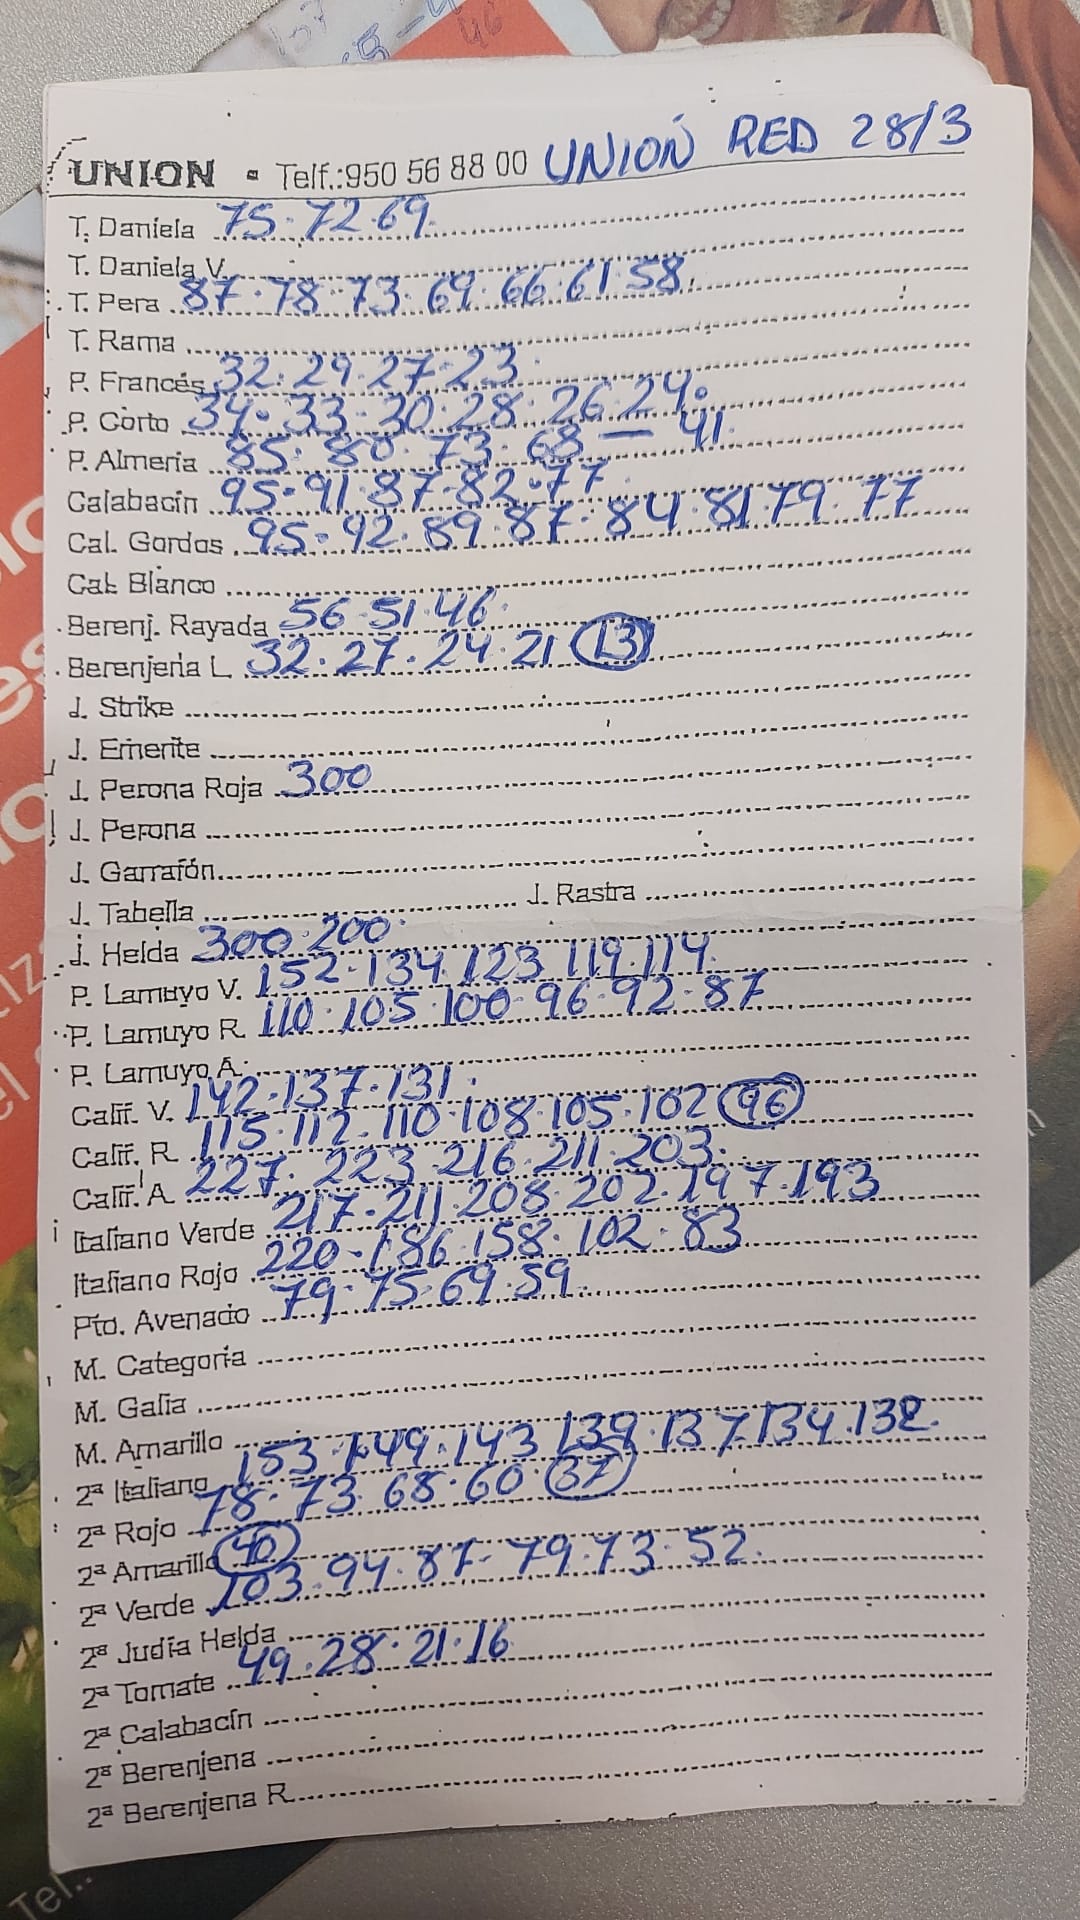 UNION - Telf.:950 56 88 00 UNION RED 28/3
T. Daniela 75.72.69.
T. Daniela V.
T. Pera 87.78.73.69.66.61.58.
T. Rama
P. Francés 32.29.27.23.
P. Corto 34.33.30.28.26.24.
P. Almeria 85.80.73.68 — 41.
Calabacín 95.91.87.82.77.
Cal. Gordos 95.92.89.87.84.81.79.77
Cal. Blanco
Berenj. Rayada 56.51.46.
Berenjena L. 32.27.24.21 13
J. Strike
J. Emerite
J. Perona Roja 300
J. Perona
J. Garrafón
J. Tabella J. Rastra
J. Helda 300.200.
P. Lamuyo V. 152.134.123.119.114.
P. Lamuyo R. 110.105.100.96.92.87
P. Lamuyo A.
Calif. V. 142.137.131.
Calif. R. 115.112.110.108.105.102 96
Calif. A. 227.223.216.211.203.
Italiano Verde 217.211.208.202.197.193
Italiano Rojo 220.186.158.102.83
Pto. Avenado 79.75.69.59.
M. Categoria
M. Galia
M. Amarillo
2ª Italiano 153.149.143.139.137.134.132.
2ª Rojo 78.73.68.60. 37
2ª Amarillo 40
2ª Verde 103.94.87.79.73.52.
2ª Judía Helda
2ª Tomate 49.28.21.16
2ª Calabacín
2ª Berenjena
2ª Berenjena R.
Tel.: